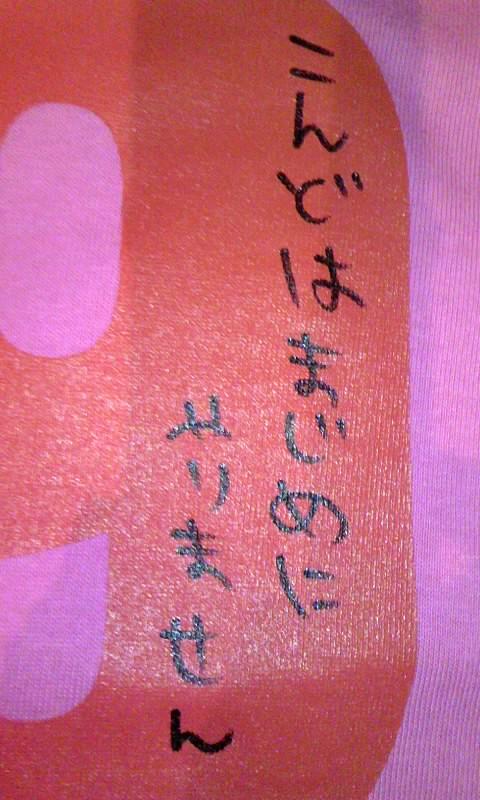 こんどはまじめに
やりません